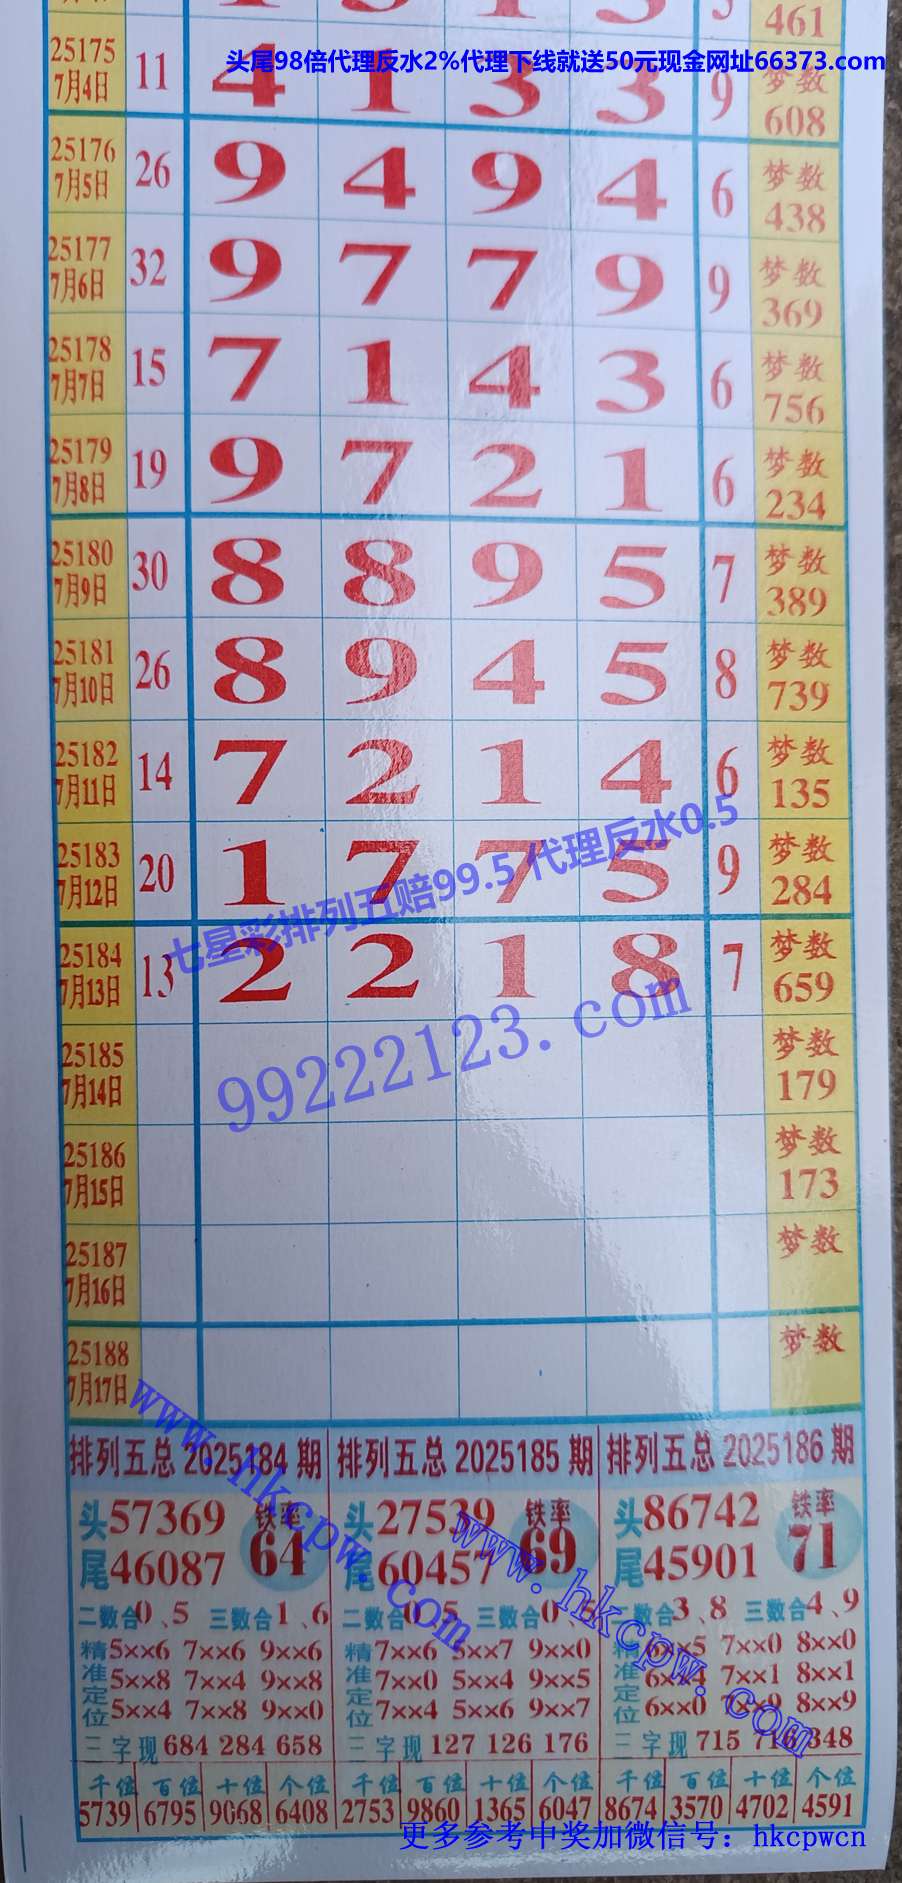 461
头尾98倍代理反水2%代理下线就送50元现金网址66373.com
25175 7月4日 11 4 1 3 3 9 梦数 608
25176 7月5日 26 9 4 9 4 6 梦数 438
25177 7月6日 32 9 7 7 9 9 梦数 369
25178 7月7日 15 7 1 4 3 6 梦数 756
25179 7月8日 19 9 7 2 1 6 梦数 234
25180 7月9日 30 8 8 9 5 7 梦数 389
25181 7月10日 26 8 9 4 5 8 梦数 739
25182 7月11日 14 7 2 1 4 6 梦数 135
25183 7月12日 20 1 7 7 5 9 梦数 284
七星彩排列五赔99.5 代理反水0.5
25184 7月13日 13 2 2 1 8 7 梦数 659
99222123.com
25185 7月14日 梦数 179
25186 7月15日 梦数 173
25187 7月16日 梦数
25188 7月17日 梦数
www.hkcpw.com
www.hkcpw.com
排列五总 2025184 期
头57369 铁率
尾46087 64
二数合0、5 三数合1、6
精准定位
5××6 7××6 9××6
5××8 7××4 9××8
5××4 7××8 9××0
三字现 684 284 658
千位 百位 十位 个位
5739 6795 9068 6408
排列五总 2025185 期
头27539
尾60457 69
二数合0、5 三数合0、5
精准定位
7××6 5××7 9××0
7××0 5××4 9××5
7××4 5××6 9××7
三字现 127 126 176
千位 百位 十位 个位
2753 9860 1365 6047
排列五总 2025186 期
头86742 铁率
尾45901 71
二数合3、8 三数合4、9
精准定位
6××5 7××0 8××0
6××4 7××1 8××1
6××0 7××9 8××9
三字现 715 716 348
千位 百位 十位 个位
8674 3570 4702 4591
更多参考中奖加微信号：hkcpwcn